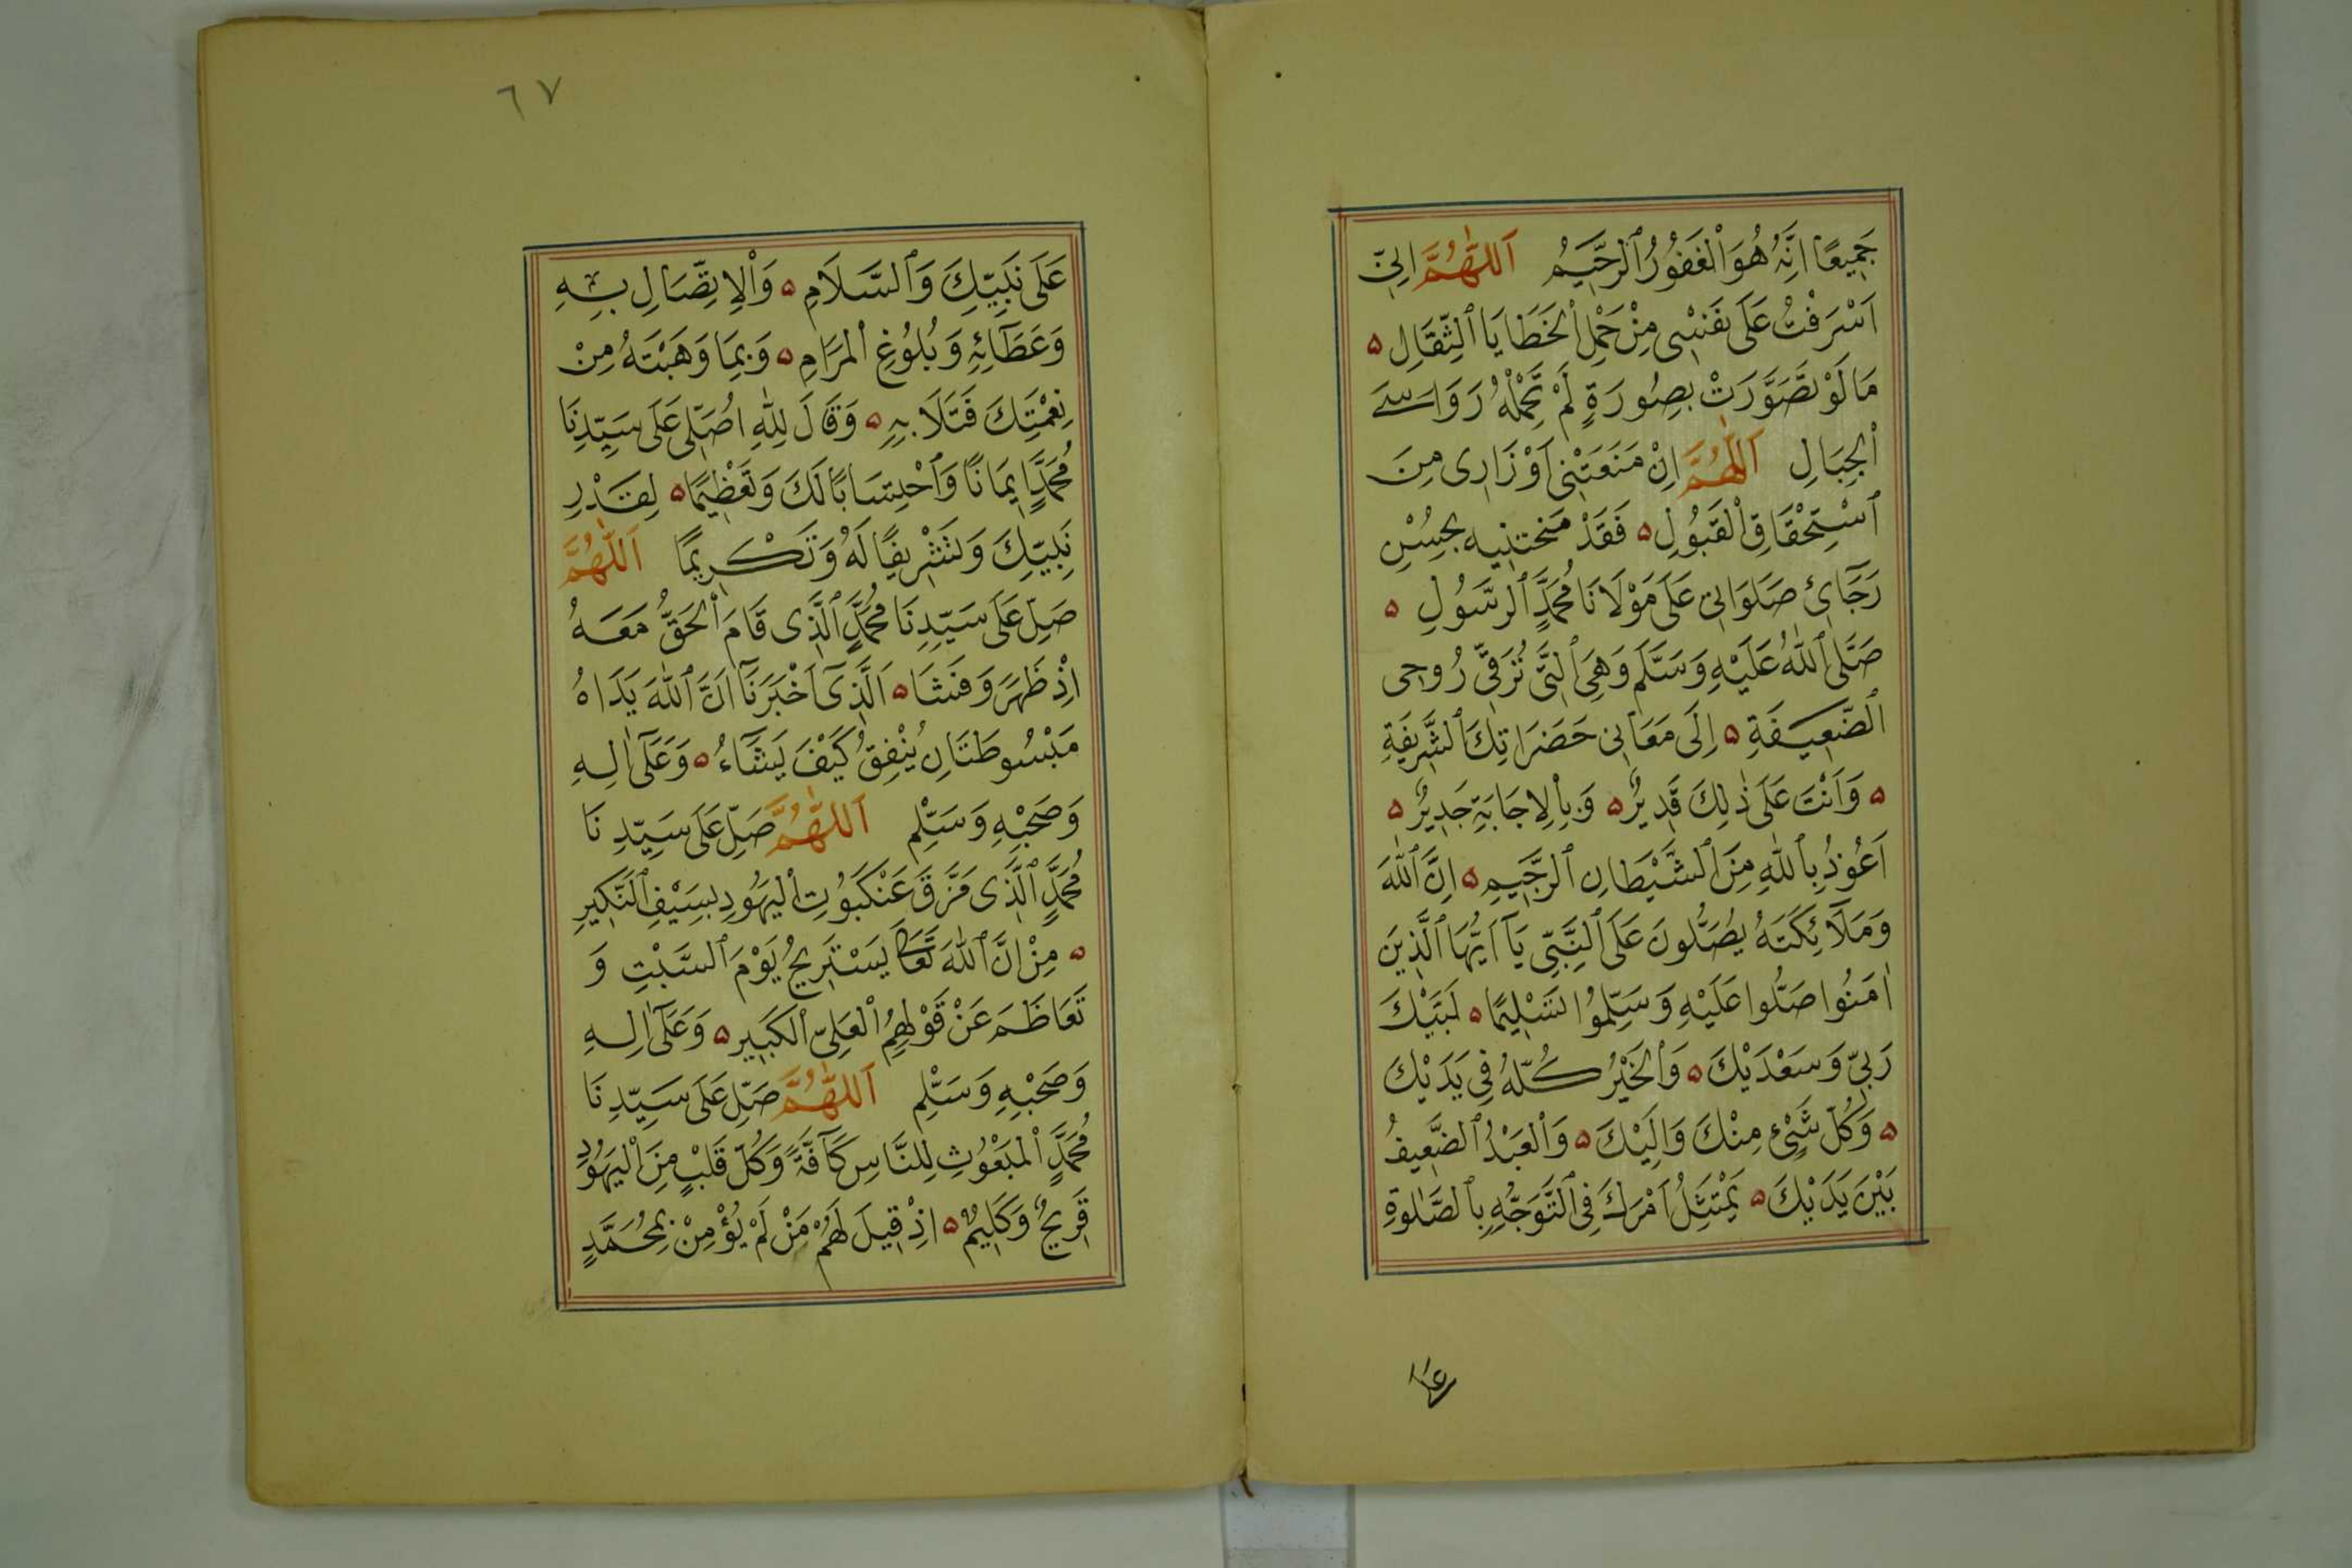 جَمِيعًا اِنَّهُ هُوَ ٱلْغَفُورُ ٱلرَّحِيمُ اَللّٰهُمَّ اِنِّى
اَسْرَفْتُ عَلَى نَفْسِى مِنْ حَمْلِ ٱلْخَطَايَا ٱلثِّقَالِ ۵
مَا لَوْ تَصَوَّرَتْ بِصُورَةٍ لَمْ تَحْمِلْهُ رَوَاسِيَ
ٱلْجِبَالِ اَللّٰهُمَّ اِنْ مَنَعَتْنِى اَوْزَارِى مِنَ
ٱسْتِحْقَاقِ ٱلْقَبُولِ ۵ فَقَدْ مَنَحْتَنِيهِ بِحُسْنِ
رَجَآئِ صَلَوَاتِى عَلَى مَوْلَانَا مُحَمَّدٍ ٱلرَّسُولِ ۵
صَلَّى ٱللّٰهُ عَلَيْهِ وَسَلَّمَ وَهِىَ ٱلَّتِى تُرَقِّى رُوحِى
ٱلضَّعِيفَةِ ۵ اِلَى مَعَانِى حَضَرَاتِكَ ٱلشَّرِيفَةِ
۵ وَاَنْتَ عَلَى ذٰلِكَ قَدِيرٌ ۵ وَبِٱلْاِجَابَةِ جَدِيرٌ ۵
اَعُوذُ بِٱللّٰهِ مِنَ ٱلشَّيْطَانِ ٱلرَّجِيمِ ۵ اِنَّ ٱللّٰهَ
وَمَلَآئِكَتَهُ يُصَلُّونَ عَلَى ٱلنَّبِّى يَآ اَيُّهَا ٱلَّذِينَ
اٰمَنُوا صَلُّوا عَلَيْهِ وَسَلِّمُوا تَسْلِيمًا ۵ لَبَّيْكَ
رَبِّى وَسَعْدَيْكَ ۵ وَٱلْخَيْرُ كُلُّهُ فِى يَدَيْكَ
۵ وَكُلُّ شَىْءٍ مِنْكَ وَاِلَيْكَ ۵ وَٱلْعَبْدُ ٱلضَّعِيفُ
بَيْنَ يَدَيْكَ ۵ يَمْتَثِلُ اَمْرَكَ فِى ٱلتَّوَجُّهِ بِٱلصَّلٰوةِ
على
٦٧
عَلَى نَبِيِّكَ وَٱلسَّلَامِ ۵ وَٱلْاِتِّصَالِ بِهِ
وَعَطَآئِهِ وَبُلُوغِ ٱلْمَرَامِ ۵ وَبِمَا وَهَبْتَهُ مِنْ
نِعْمَتِكَ فَتَلَا بِهِ ۵ وَقَالَ لِلّٰهِ اُصَلِّى عَلَى سَيِّدِنَا
مُحَمَّدٍ اِيمَانًا وَٱحْتِسَابًا لَكَ وَتَعْظِيمًا ۵ لِقَدْرِ
نَبِيِّكَ وَتَشْرِيفًا لَهُ وَتَكْرِيمًا اَللّٰهُمَّ
صَلِّ عَلَى سَيِّدِنَا مُحَمَّدٍ ٱلَّذِى قَامَ ٱلْحَقُّ مَعَهُ
اِذْ ظَهَرَ وَفَشَا ۵ اَلَّذِىٓ اَخْبَرَنَآ اَنَّ ٱللّٰهَ يَدَاهُ
مَبْسُوطَتَانِ يُنْفِقُ كَيْفَ يَشَآءُ ۵ وَعَلَىٓ اٰلِهِ
وَصَحْبِهِ وَسَلِّمِ اَللّٰهُمَّ صَلِّ عَلَى سَيِّدِنَا
مُحَمَّدٍ ٱلَّذِى مَزَّقَ عَنْكَبُوتِ ٱلْيَهُودِ بِسَيْفِ ٱلنَّكِيرِ
۵ مِنْ اَنَّ ٱللّٰهَ تَعَالَى يَسْتَرِيحُ يَوْمَ ٱلسَّبْتِ وَ
تَعَاظَمَ عَنْ قَوْلِهِمُ ٱلْعَلِىِّ ٱلْكَبِيرِ ۵ وَعَلَىٓ اٰلِهِ
وَصَحْبِهِ وَسَلِّمِ اَللّٰهُمَّ صَلِّ عَلَى سَيِّدِنَا
مُحَمَّدٍ ٱلْمَبْعُوثِ لِلنَّاسِ كَآفَّةً وَكُلُّ قَلْبٍ مِنَ ٱلْيَهُودِ
قَرِيحٌ وَكَلِيمٌ ۵ اِذْ قِيلَ لَهُمْ مَنْ لَمْ يُؤْمِنْ بِمُحَمَّدٍ